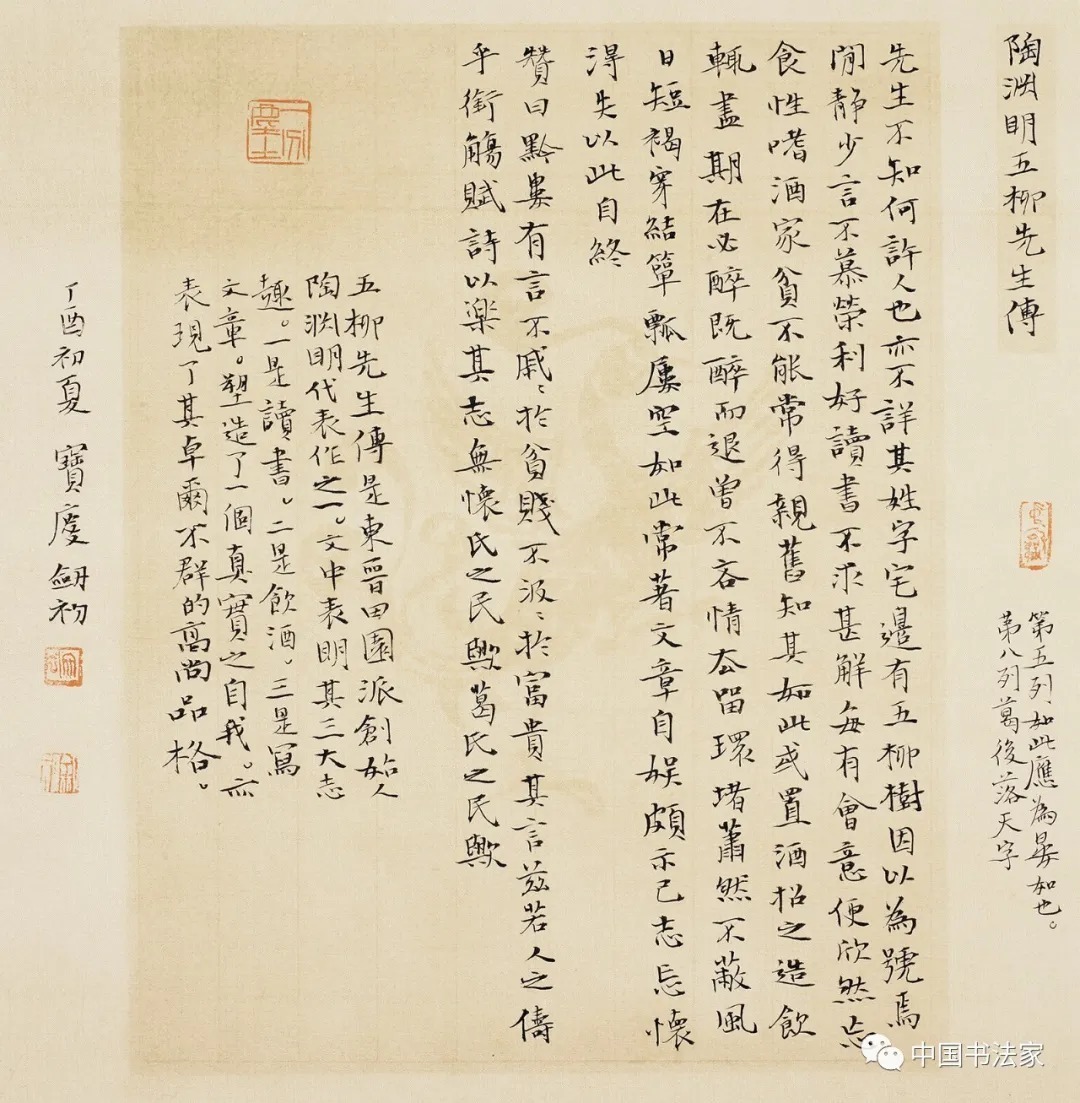 陶淵明五柳先生傳
第五列如此應為晏如也。
第八列葛後落天字
先生不知何許人也亦不詳其姓字宅邊有五柳樹因以為號焉
閒靜少言不慕榮利好讀書不求甚解每有會意便欣然忘
食性嗜酒家貧不能常得親舊知其如此或置酒招之造飲
輒盡期在必醉既醉而退曾不吝情去留環堵蕭然不蔽風
日短褐穿結簞瓢屢空如此常著文章自娛頗示己志忘懷
得失以此自終
贊曰黔婁有言不戚〻於貧賤不汲〻於富貴其言茲若人之儔
乎銜觴賦詩以樂其志無懷氏之民歟葛氏之民歟
五柳先生傳是東晉田園派創始人
陶淵明代表作之一。文中表明其三大志
趣。一是讀書。二是飲酒。三是寫
文章。塑造了一個真實之自我。亦
表現了其卓爾不群的高尚品格。
丁酉初夏 寶慶 劍初
中国书法家